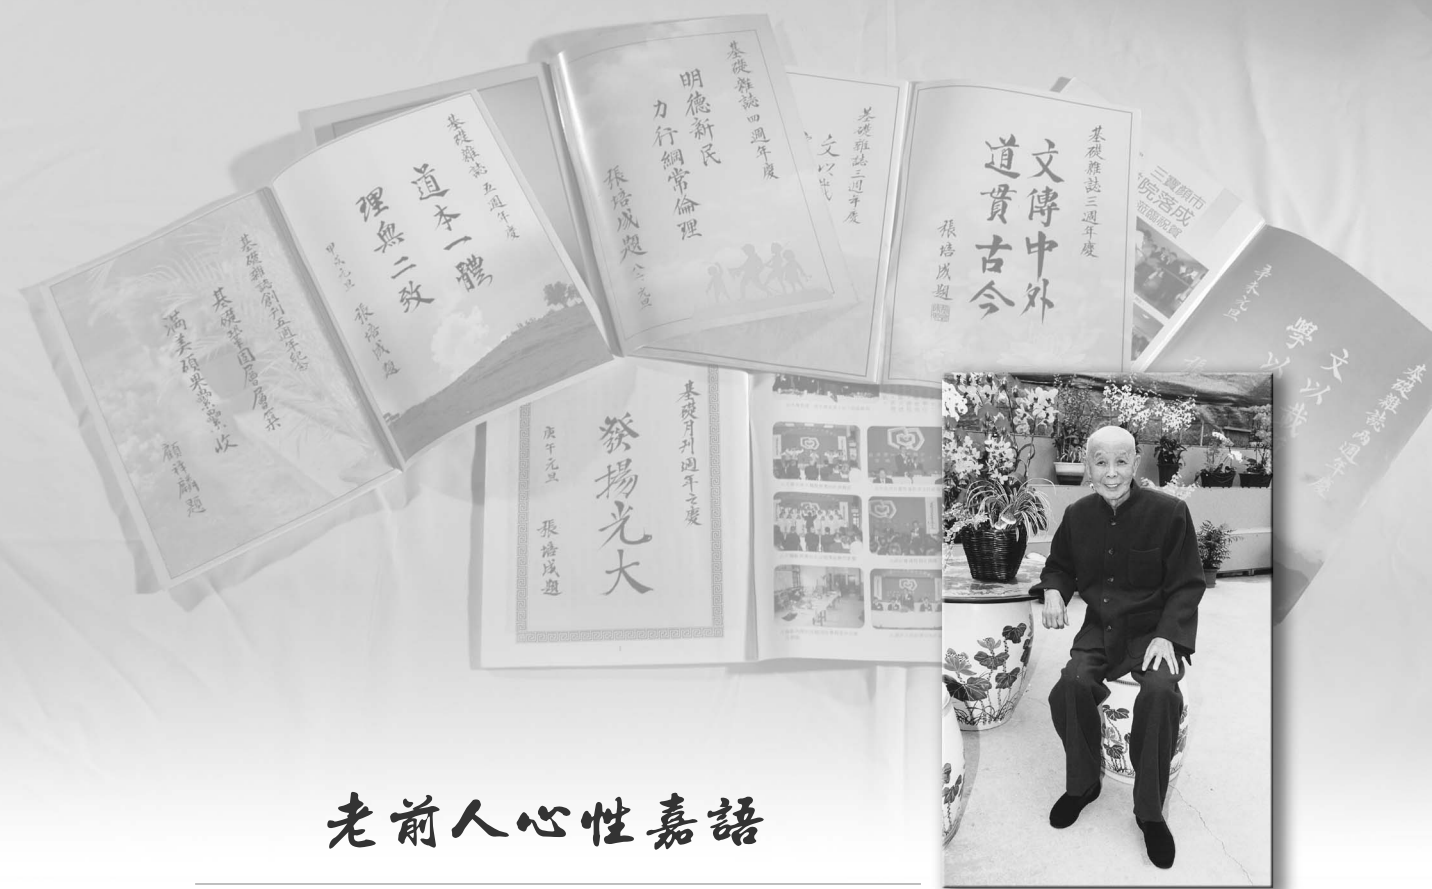 基礎雜誌創刊五週年紀念
基礎鞏固層層築
滿美碩果業豐收
顏祥麟題
基礎雜誌五週年慶
道本一體
理無二致
甲戌元旦
張培成題
基礎雜誌四週年慶
明德新民
力行綱常倫理
張培成題
元旦
基礎雜誌三週年慶
文以
基礎雜誌三週年慶
文傳中外
道貫古今
張培成題
三寶顏市
院落成
基礎雜誌
週年慶
文以載
學以
辛未元旦
基礎月刊週年之慶
發揚光大
庚午元旦
張培成題
老前人心性嘉語